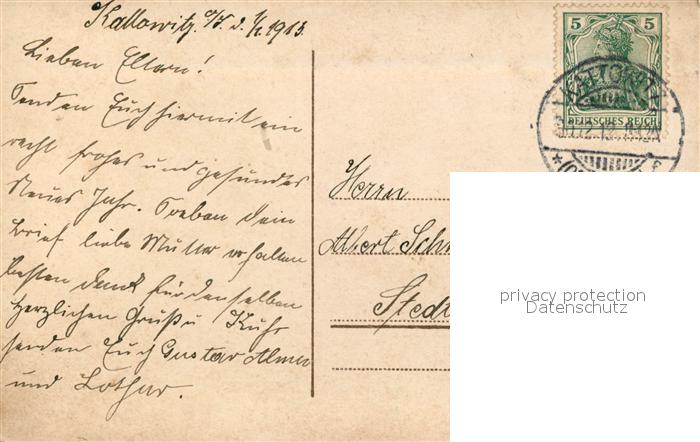 Kattowitz O/S d. 1/1 1913.
Lieben Eltern!
Senden Euch hiermit ein
recht frohes und gesundes
Neues Jahr. Soeben dein
Brief liebe Mutter erhalten
besten Dank für denselben
Herzlichen Gruß u Kuß
senden Euch Gustav
und Lothar.
5 5
DEUTSCHES REICH
KATTOWITZ
12.12
Herrn
Albert Sch
Stedt
privacy protection
Datenschutz